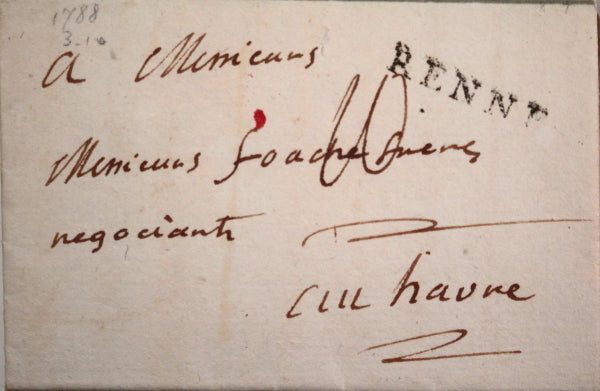 1788
3-10
RENNE
A Messieurs
Messieurs foache freres
10
negociants
au havre